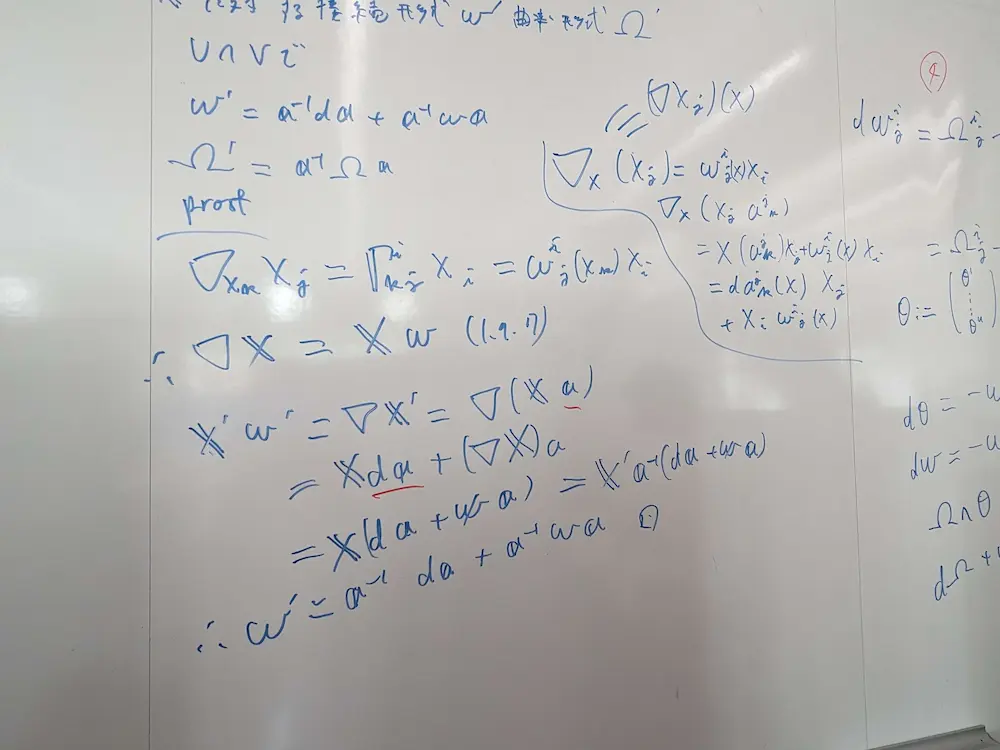 接続形式 ω' 曲率形式 Ω'
U∩Vで
ω' = a⁻¹da + a⁻¹ωa
Ω' = a⁻¹Ωa
proof
∇_{X_k} X_j = Γ^i_{kj} X_i = ω^i_j(X_k) X_i
∴ ∇X = Xω (1.9.7)
X'ω' = ∇X' = ∇(Xa)
= Xda + (∇X)a
= X(da + ωa) = X'a⁻¹(da + ωa)
∴ ω' = a⁻¹da + a⁻¹ωa □
(∇X_j)(X)
∇_X(X_j) = ω^i_j(X)X_i
∇_X(X_j a^j_k)
= X(a^j_k)X_j + ω^i_j(X)X_i
= da^j_k(X) X_j
+ X_i ω^i_j(X)
④
dω^i_j = Ω^i_j -
= Ω^i_j -
θ := (θ¹ ⋮ θⁿ)
dθ = -ω
dω = -ω
Ω∧θ
dΩ +